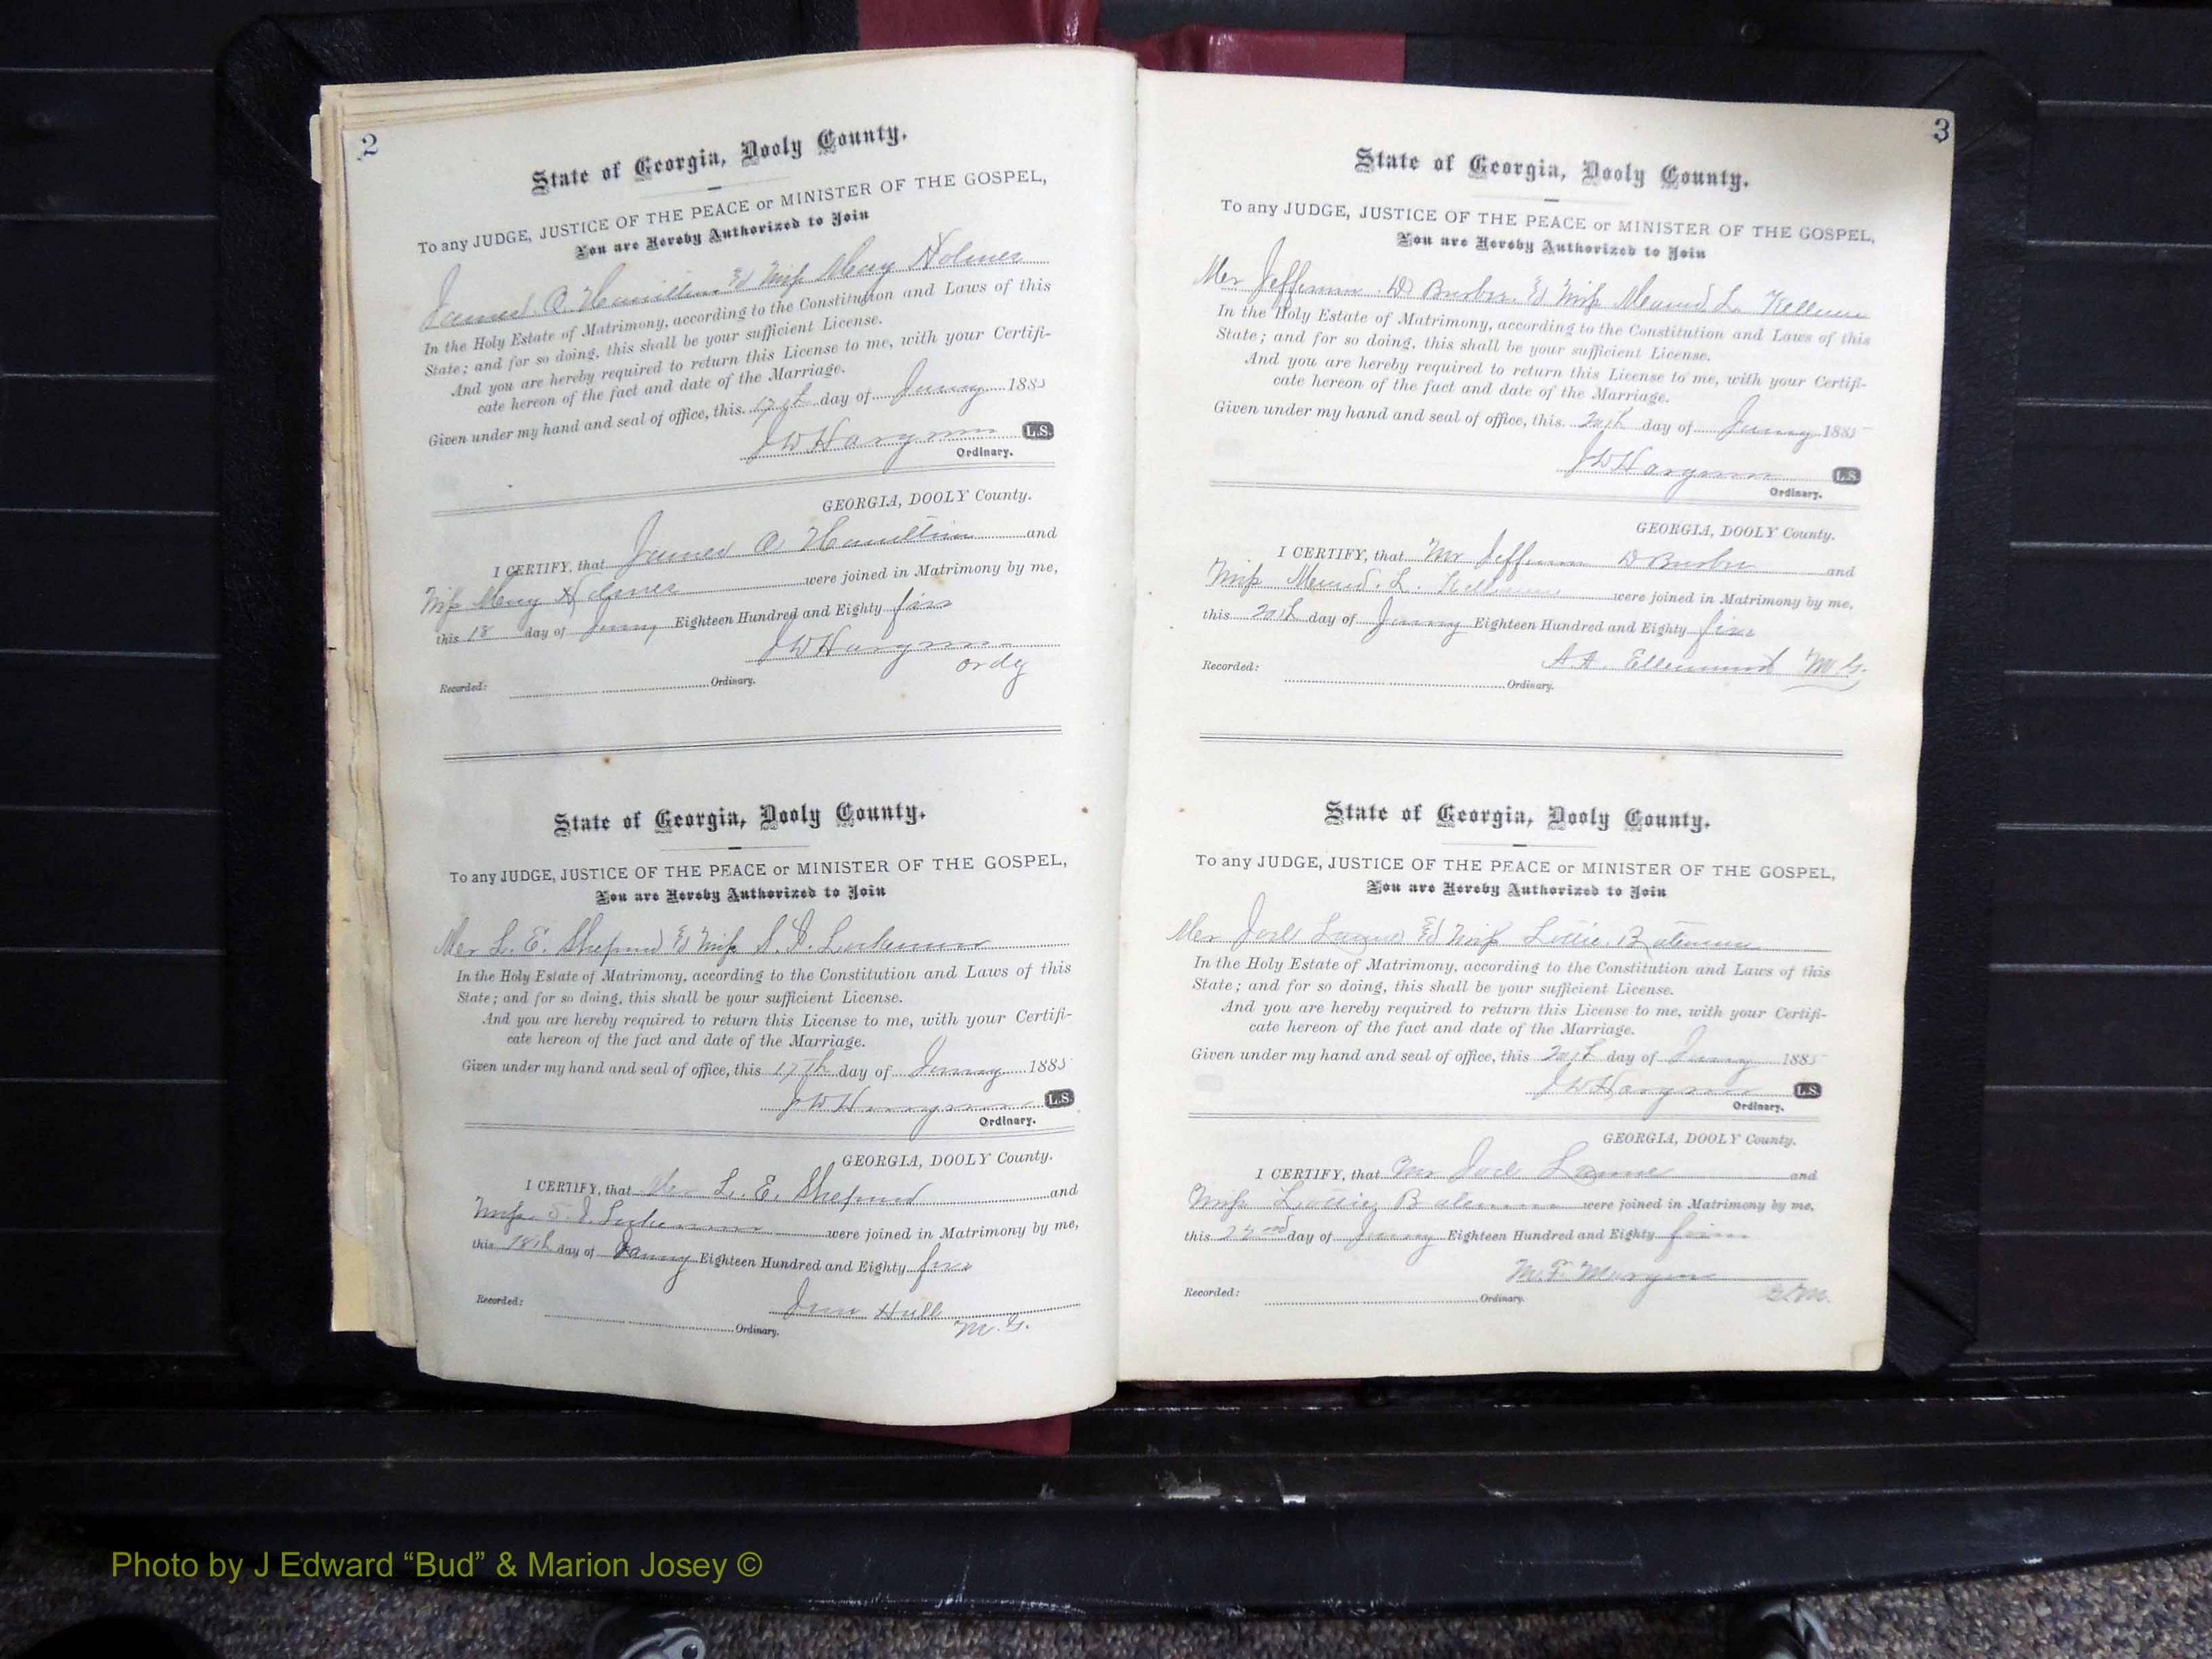 2
State of Georgia, Dooly County.
To any JUDGE, JUSTICE OF THE PEACE or MINISTER OF THE GOSPEL,
You are Hereby Authorized to Join
James Q. Hamilton & Miss Mary Holmes
In the Holy Estate of Matrimony, according to the Constitution and Laws of this
State; and for so doing, this shall be your sufficient License.
And you are hereby required to return this License to me, with your Certifi-
cate hereon of the fact and date of the Marriage.
Given under my hand and seal of office, this 17th day of 1885
L.S.
Ordinary.
GEORGIA, DOOLY County.
I CERTIFY, that James Q Hamilton and
Miss Mary Holmes were joined in Matrimony by me,
this 18 day of Eighteen Hundred and Eighty five
ordy
Recorded: Ordinary.
State of Georgia, Dooly County.
To any JUDGE, JUSTICE OF THE PEACE or MINISTER OF THE GOSPEL,
You are Hereby Authorized to Join
Mr L. E. Shepard & Miss
In the Holy Estate of Matrimony, according to the Constitution and Laws of this
State; and for so doing, this shall be your sufficient License.
And you are hereby required to return this License to me, with your Certifi-
cate hereon of the fact and date of the Marriage.
Given under my hand and seal of office, this 17th day of 1885
L.S.
Ordinary.
GEORGIA, DOOLY County.
I CERTIFY, that Mr L. E. Shepard and
Miss were joined in Matrimony by me,
this 18th day of Eighteen Hundred and Eighty five
Hull
M.G.
Recorded: Ordinary.
3
State of Georgia, Dooly County.
To any JUDGE, JUSTICE OF THE PEACE or MINISTER OF THE GOSPEL,
You are Hereby Authorized to Join
Mr Jefferson D Busbee & Miss Maud L.
In the Holy Estate of Matrimony, according to the Constitution and Laws of this
State; and for so doing, this shall be your sufficient License.
And you are hereby required to return this License to me, with your Certifi-
cate hereon of the fact and date of the Marriage.
Given under my hand and seal of office, this 20th day of 1885
L.S.
Ordinary.
GEORGIA, DOOLY County.
I CERTIFY, that Mr Jefferson D Busbee and
Miss Maud L. were joined in Matrimony by me,
this 20th day of Eighteen Hundred and Eighty five
A.A. M.G.
Recorded: Ordinary.
State of Georgia, Dooly County.
To any JUDGE, JUSTICE OF THE PEACE or MINISTER OF THE GOSPEL,
You are Hereby Authorized to Join
Mr Joel & Miss Bateman
In the Holy Estate of Matrimony, according to the Constitution and Laws of this
State; and for so doing, this shall be your sufficient License.
And you are hereby required to return this License to me, with your Certifi-
cate hereon of the fact and date of the Marriage.
Given under my hand and seal of office, this 20th day of 1885
L.S.
Ordinary.
GEORGIA, DOOLY County.
I CERTIFY, that Mr Joel and
Miss Bateman were joined in Matrimony by me,
this 22nd day of Eighteen Hundred and Eighty five
M.F.
Recorded: Ordinary.
Photo by J Edward “Bud” & Marion Josey ©